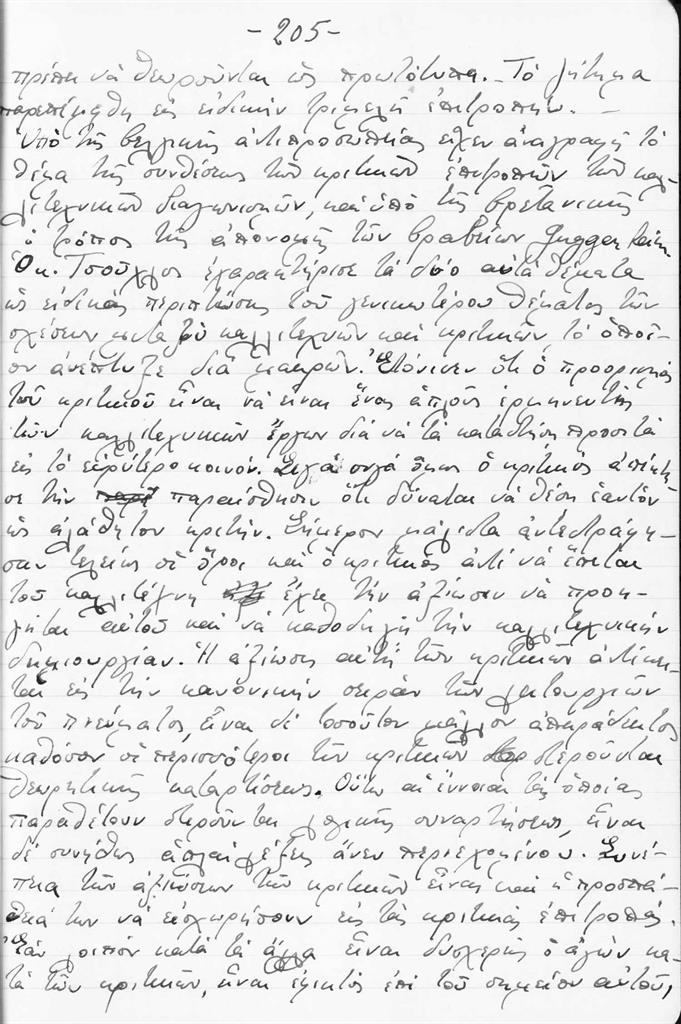 -205-
πρέπει νὰ θεωροῦνται ὡς πρωτότυπα. - Τὸ ζήτημα
παρεπέμφθη εἰς εἰδικὴν τριμελῆ ἐπιτροπήν. -
Ὑπὸ τῆς βελγικῆς ἀντιπροσωπείας εἶχεν ἀναγραφῆ τὸ
θέμα τῆς συνθέσεως τῶν κριτικῶν ἐπιτροπῶν τῶν καλ-
λιτεχνικῶν διαγωνισμῶν, καὶ ὑπὸ τῆς βρετανικῆς
ὁ τρόπος τῆς ἀπονομῆς τῶν βραβείων
Ὁ κ. Τσούχλος ἐχαρακτήρισε τὰ δύο αὐτὰ θέματα
ὡς εἰδικὰς περιπτώσεις τοῦ γενικωτέρου θέματος τῶν
σχέσεων μεταξὺ καλλιτεχνῶν καὶ κριτικῶν, τὸ ὁποῖ-
ον ἀνέπτυξε διὰ μακρῶν. Ἐτόνισεν ὅτι ὁ προορισμὸς
τοῦ κριτικοῦ εἶναι νὰ εἶναι ἕνας ἁπλοῦς ἑρμηνευτὴς
τῶν καλλιτεχνικῶν ἔργων διὰ νὰ τὰ καταστήσῃ προσιτὰ
εἰς τὸ εὐρύτερο κοινόν. Σιγά σιγά ὅμως ὁ κριτικὸς ἀπέκτη-
σε τὴν παραίσθησιν ὅτι δύναται νὰ θέσῃ ἑαυτὸν
ὡς ἀλάθητον κριτήν. Σήμερον μάλιστα ἀντεστράφη-
σαν τελείως οἱ ὅροι καὶ ὁ κριτικὸς ἀντὶ νὰ ἕπεται
τοῦ καλλιτέχνη ἔχει τὴν ἀξίωσιν νὰ προη-
γῆται αὐτοῦ καὶ νὰ καθοδηγῇ τὴν καλλιτεχνικὴν
δημιουργίαν. Ἡ ἀξίωσις αὐτὴ τῶν κριτικῶν ἀντίκει-
ται εἰς τὴν κανονικὴν σειρὰν τῶν λειτουργιῶν
τοῦ πνεύματος, εἶναι δὲ τοσοῦτον μᾶλλον ἀπαράδεκτος
καθόσον οἱ περισσότεροι τῶν κριτικῶν στεροῦνται
θεωρητικῆς καταρτίσεως. Οὕτω αἱ ἔννοιαι τὰς ὁποίας
παραθέτουν στεροῦνται λογικῆς συναρτήσεως, εἶναι
δὲ συνήθως ἁπλαῖ λέξεις ἄνευ περιεχομένου. Συνέ-
πεια τῶν ἀξιώσεων τῶν κριτικῶν εἶναι καὶ ἡ προσπά-
θειά των νὰ εἰσχωρήσουν εἰς τὰς κριτικὰς ἐπιτροπάς.
Ἐὰν λοιπὸν κατὰ τὰ ἄλλα εἶναι δυσχερὴς ὁ ἀγὼν κα-
τὰ τῶν κριτικῶν, εἶναι ἐφικτὸς ἐπὶ τοῦ σημείου αὐτοῦ,